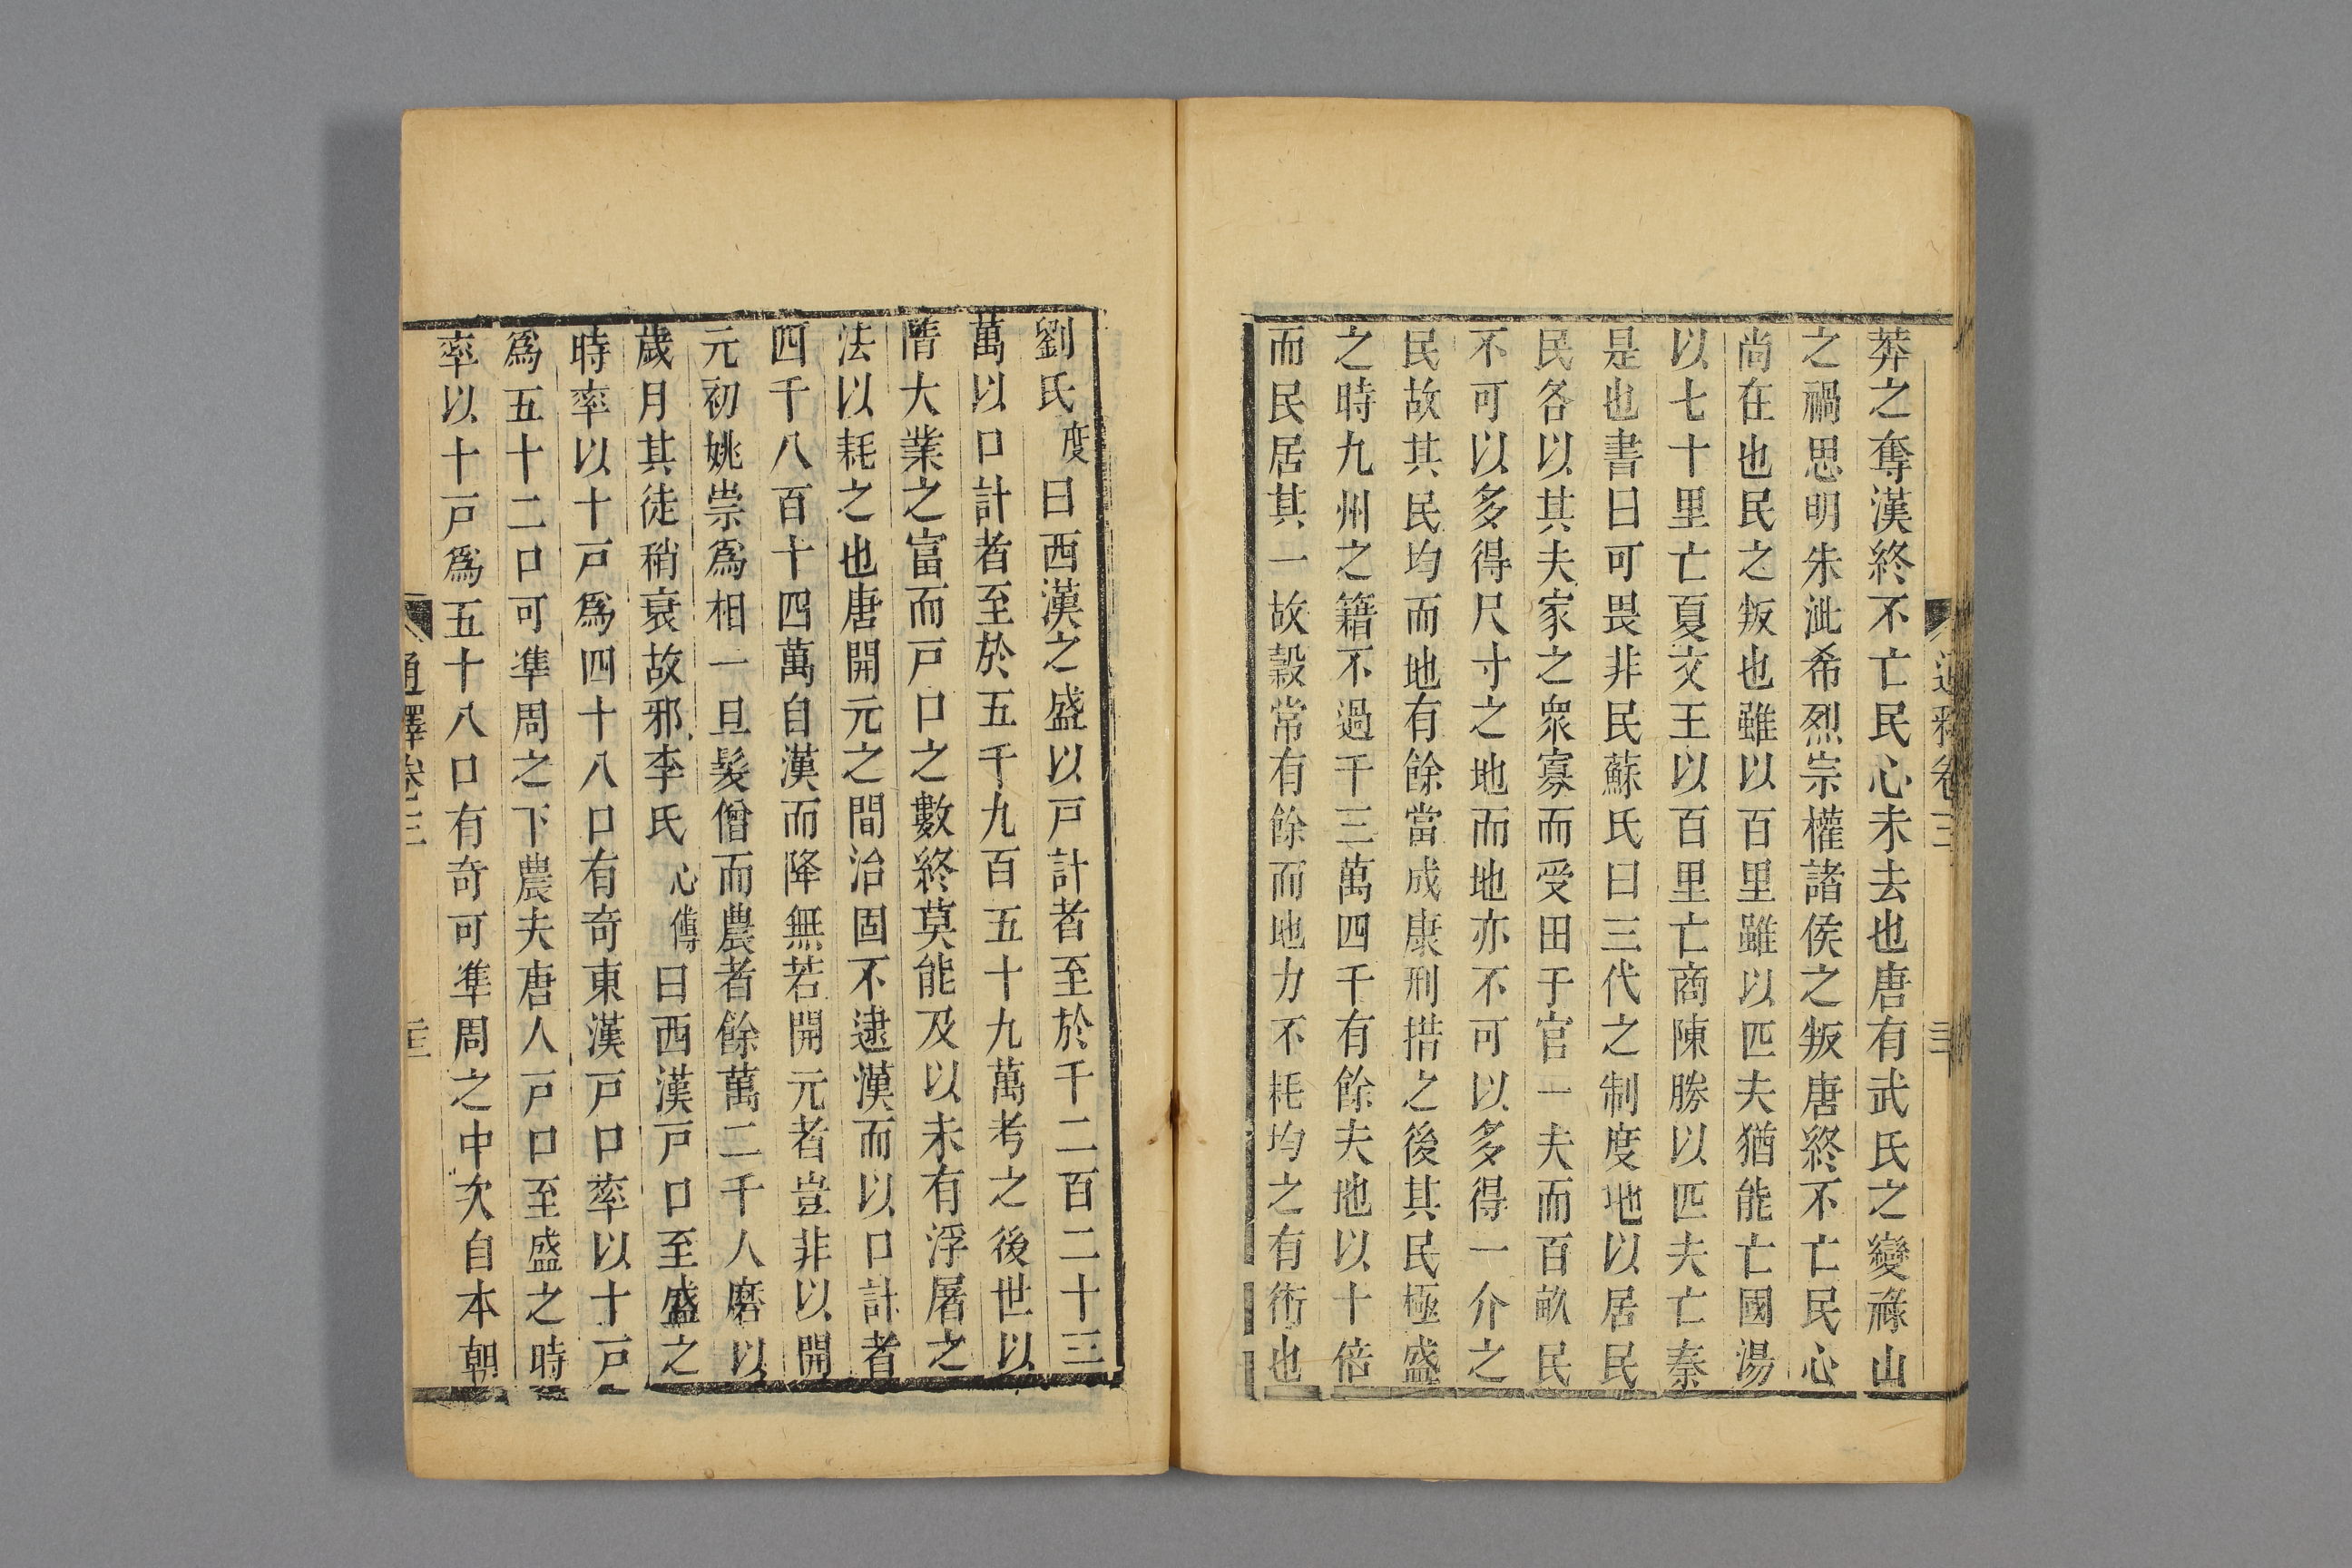 莽之奪漢終不亡民心未去也唐有武氏之變祿山
之禍思明朱泚希烈崇權諸侯之叛唐終不亡民心
尚在也民之叛也雖以百里雖以匹夫猶能亡國湯
以七十里亡夏文王以百里亡商陳勝以匹夫亡秦
是也書曰可畏非民蘇氏曰三代之制度地以居民
民各以其夫家之眾寡而受田于官一夫而百畝民
不可以多得尺寸之地而地亦不可以多得一介之
民故其民均而地有餘當成康刑措之後其民極盛
之時九州之籍不過千三萬四千有餘夫地以十倍
而民居其一故穀常有餘而地力不耗均之有術也
劉氏度曰西漢之盛以戸計者至於千二百二十三
萬以口計者至於五千九百五十九萬考之後世以
隋大業之富而戸口之數終莫能及以未有浮屠之
法以耗之也唐開元之間治固不逮漢而以口計者
四千八百十四萬自漢而降無若開元者豈非以開
元初姚崇爲相一旦髮僧而農者餘萬二千人磨以
歲月其徒稍衰故邪李氏心傳曰西漢戸口至盛之
時率以十戸爲四十八口有奇東漢戸口率以十戸
爲五十二口可準周之下農夫唐人戸口至盛之時
率以十戸爲五十八口有奇可準周之中次自本朝
通釋卷三